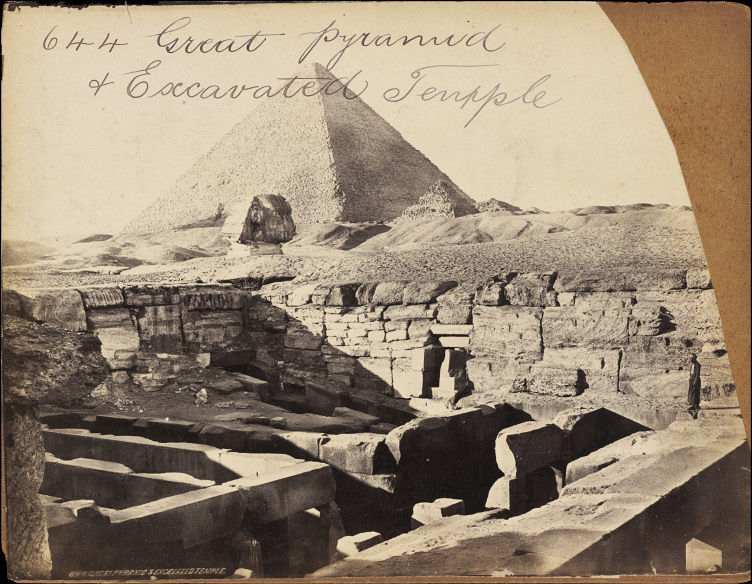 644 Great Pyramid
& Excavated Temple
644 GREAT PYRAMID & EXCAVATED TEMPLE.